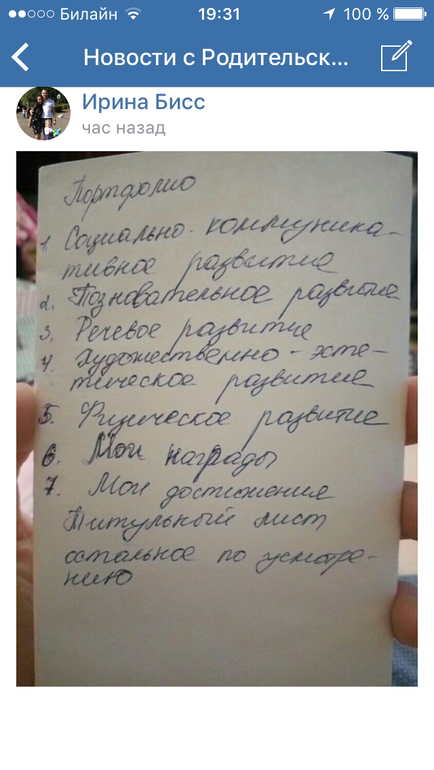 Билайн 19:31 100 %
Новости с Родительск...
Ирина Бисс
час назад
Портфолио
1. Социально-коммуника-
тивное развитие
2. Познавательное развитие
3. Речевое развитие
4. Художественно-эсте-
тическое развитие
5. Физическое развитие
6. Мои награды
7. Мои достижения
Титульный лист
остальное по усмотре-
нию